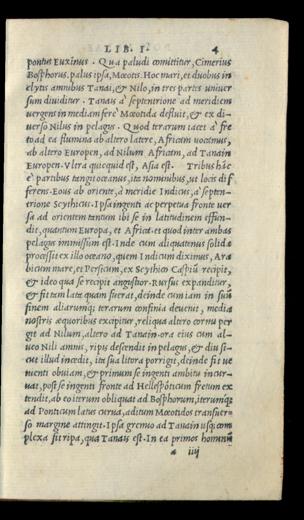 LIB. I. 4
pontus Euxinus . Qua paludi committitur, Cimerius
Bosphorus. palus ipsa, Mœotis. Hoc mari, et duobus in
clytis amnibus Tanai, & Nilo, in tres partes univer
sum dividitur . Tanais à septentrione ad meridiem
vergens in mediam ferè Mœotida defluit, & ex di-
verso Nilus in pelagus . Quod terarum iacet à fre
to ad ea flumina ab altero latere, Africam vocamus,
ab altero Europen, ad Nilum Africam, ad Tanain
Europen. Vltra quicquid est, Asia est. Tribus hæc
è partibus tangit oceanus, ita nominibus, ut locis dif
ferens. Eous ab oriente, à meridie Indicus, à septen-
trione Scythicus. Ipsa ingenti ac perpetua fronte ver
sa ad orientem tantum ibi se in latitudinem effun-
dit, quantum Europa, et Africa, et quod inter ambas
pelagus immissum est. Inde cum aliquatenus solida
processit ex illo oceano, quem Indicum diximus, Ara
bicum mare, et Persicum, ex Scythico Caspiũ recipit,
& ideo qua se recipit angustior. Rursus expanditur,
& fit tam lata quam fuerat, deinde cum iam in suũ
finem aliarumq; terarum confinia devenit, media
nostris æquoribus excipitur, reliqua altero cornu per
git ad Nilum, altero ad Tanain. ora eius cum al-
veo Nili amnis, ripis descendit in pelagus, & diu si-
cut illud incedit, ita sua litora porrigit, deinde fit ve
nienti obviam, & primum se ingenti ambitu incur-
vat, post se ingenti fronte ad Hellesponticum fretum ex
tendit, ab eo iterum obliquat ad Bosphorum, iterumq;
ad Ponticum latus curva, aditum Mœotidos transver-
so margine attingit. Ipsa gremio ad Tanain usq; com
plexa fit ripa, qua Tanais est. In ea primos hominũ
a iiij